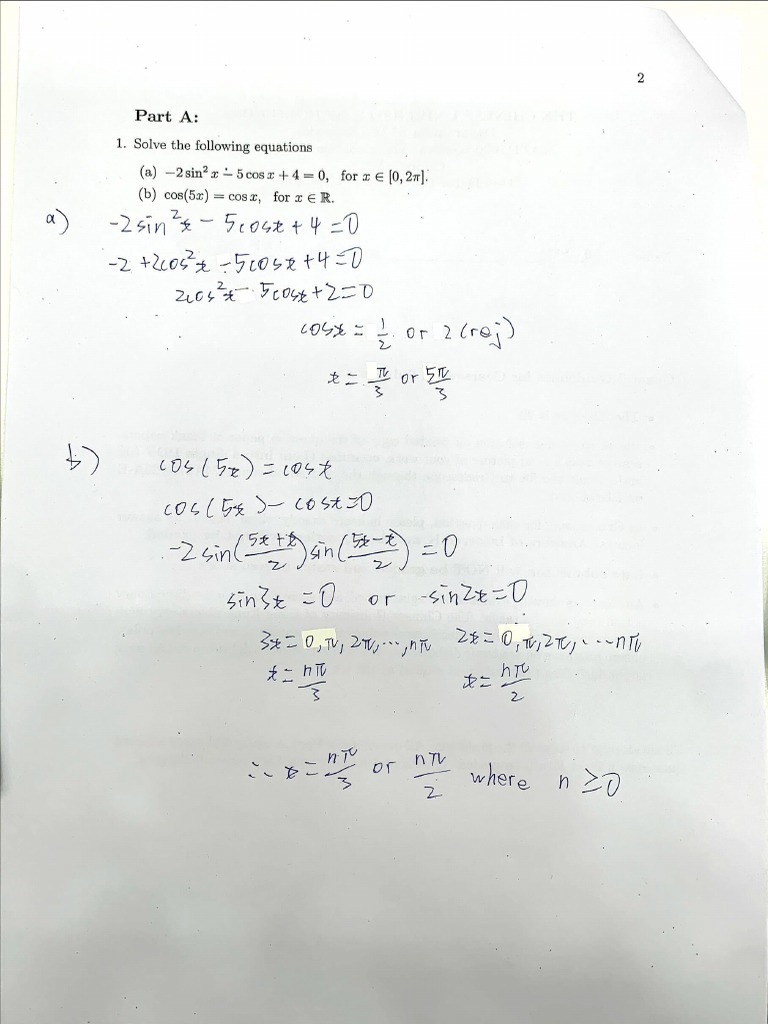 2
Part A:
1. Solve the following equations
(a) −2 sin² x − 5 cos x + 4 = 0, for x ∈ [0, 2π].
(b) cos(5x) = cos x, for x ∈ ℝ.
a) -2sin²x - 5cosx + 4 = 0
-2 + 2cos²x - 5cosx + 4 = 0
2cos²x - 5cosx + 2 = 0
cosx = 1/2 or 2 (rej)
x = π/3 or 5π/3
b) cos(5x) = cosx
cos(5x) - cosx = 0
-2 sin((5x+x)/2) sin((5x-x)/2) = 0
sin3x = 0 or -sin2x = 0
3x = 0, π, 2π, ..., nπ 2x = 0, π, 2π, ... nπ
x = nπ/3 x = nπ/2
∴ x = nπ/3 or nπ/2 where n ≥ 0